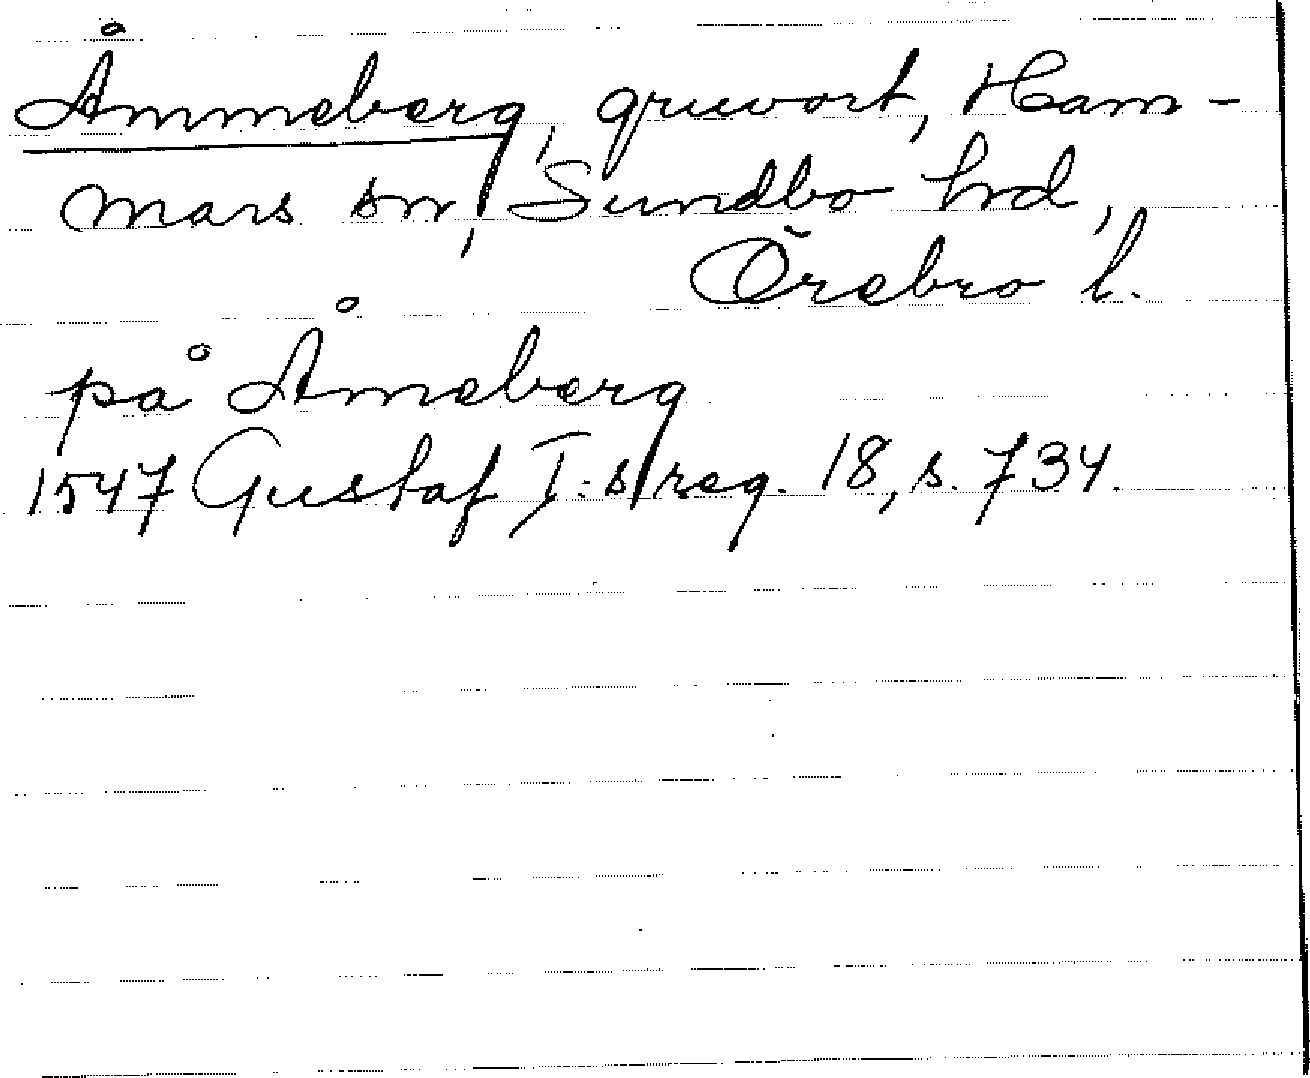 Åmmeberg, gruvort, Ham-
mars sn, Sundbo hrd,
Örebro l.
på Åmeberg
1547 Gustaf I:s reg. 18, s. 734.